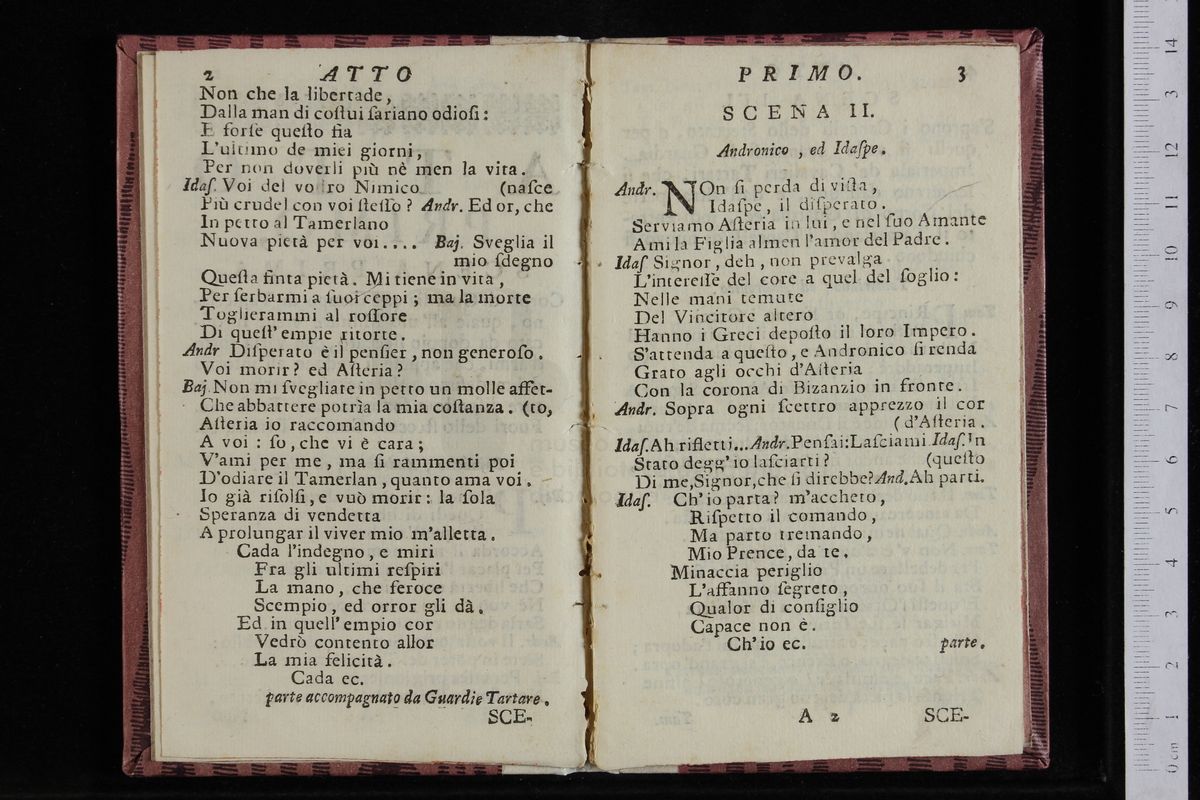 2 ATTO
Non che la libertade,
Dalla man di coſtui ſariano odioſi:
E forſe queſto fia
L'ultimo de miei giorni,
Per non doverli più nè men la vita.
Idaſ. Voi del voſtro Nimico (naſce
Più crudel con voi ſteſſo? Andr. Ed or, che
In petto al Tamerlano
Nuova pietà per voi.... Baj. Sveglia il
mio ſdegno
Queſta finta pietà. Mi tiene in vita,
Per ſerbarmi a ſuoi ceppi; ma la morte
Toglierammi al roſſore
Di queſt' empie ritorte.
Andr Diſperato è il penſier, non generoſo.
Voi morir? ed Aſteria?
Baj. Non mi ſvegliate in petto un molle affet-
Che abbattere potrìa la mia coſtanza. (to,
Aſteria io raccomando
A voi: ſo, che vi è cara;
V'ami per me, ma ſi rammenti poi
D'odiare il Tamerlan, quanto ama voi.
Io già riſolſi, e vuò morir: la ſola
Speranza di vendetta
A prolungar il viver mio m'alletta.
Cada l'indegno, e miri
Fra gli ultimi reſpiri
La mano, che feroce
Scempio, ed orror gli dà.
Ed in quell' empio cor
Vedrò contento allor
La mia felicità.
Cada ec.
parte accompagnato da Guardie Tartare.
SCE-
PRIMO. 3
SCENA II.
Andronico, ed Idaſpe.
Andr. NOn ſi perda di viſta,
Idaſpe, il diſperato.
Serviamo Aſteria in lui, e nel ſuo Amante
Ami la Figlia almen l'amor del Padre.
Idaſ Signor, deh, non prevalga
L'intereſſe del core a quel del ſoglio:
Nelle mani temute
Del Vincitore altero
Hanno i Greci depoſto il loro Impero.
S'attenda a queſto, e Andronico ſi renda
Grato agli occhi d'Aſteria
Con la corona di Bizanzio in fronte.
Andr. Sopra ogni ſcettro apprezzo il cor
(d'Aſteria.
Idaſ. Ah rifletti... Andr. Penſai: Laſciami Idaſ. In
Stato degg' io laſciarti? (queſto
Di me, Signor, che ſi direbbe? And. Ah parti.
Idaſ. Ch' io parta? m'accheto,
Riſpetto il comando,
Ma parto tremando,
Mio Prence, da te.
Minaccia periglio
L'affanno ſegreto,
Qualor di conſiglio
Capace non è.
Ch' io ec. parte.
A 2 SCE-